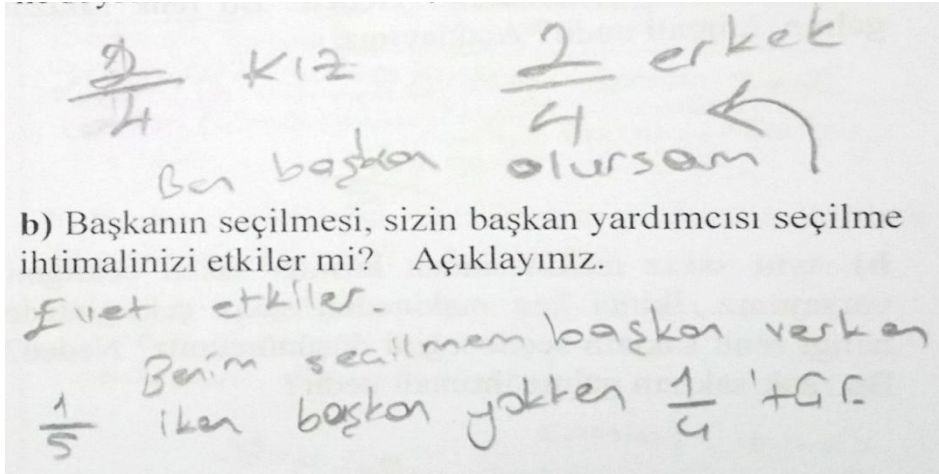 2/4 kız 2/4 erkek
Ben başkan olursam
b) Başkanın seçilmesi, sizin başkan yardımcısı seçilme
ihtimalinizi etkiler mi? Açıklayınız.
Evet etkiler.
Benim seçilmem başkan varken
1/5 iken başkan yokken 1/4 'tür.